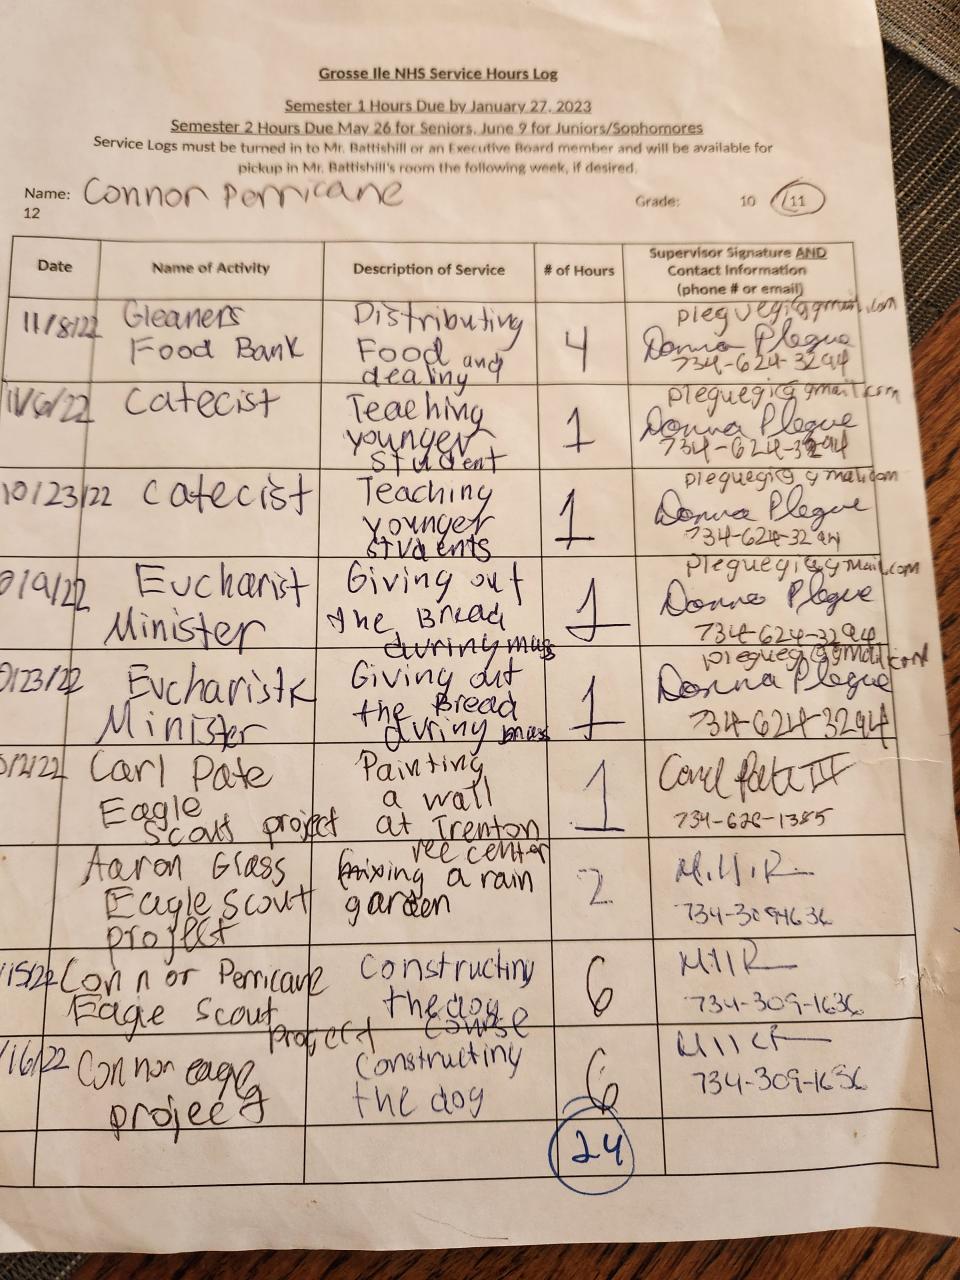 Grosse Ile NHS Service Hours Log
Semester 1 Hours Due by January 27, 2023
Semester 2 Hours Due May 26 for Seniors, June 9 for Juniors/Sophomores
Service Logs must be turned in to Mr. Battishill or an Executive Board member and will be available for
pickup in Mr. Battishill's room the following week, if desired.
Name: Connor Perricane Grade: 10 11
12
Date Name of Activity Description of Service # of Hours Supervisor Signature AND
Contact Information
(phone # or email)
11/8/22 Gleaners Distributing 4 pleguegi@gmail.com
Food Bank Food and Donna Plegue
dealing 734-624-3294
11/6/22 Catecist Teaching 1 pleguegi@gmail.com
younger Donna Plegue
student 734-624-3294
10/23/22 Catecist Teaching 1 pleguegi@gmail.com
younger Donna Plegue
students 734-624-3294
0/9/22 Eucharist Giving out 1 pleguegi@gmail.com
Minister the Bread Donna Plegue
during mass 734-624-3294
0/23/22 Eucharist Giving out 1 pleguegi@gmail.com
Minister the Bread Donna Plegue
during mass 734-624-3294
/2/22 Carl Pate Painting 1 Carl Pate III
Eagle a wall 734-626-1385
Scout project at Trenton
rec center
Aaron Glass fixing a rain 2
Eagle Scout garden 734-3094636
project
/15/22 Connor Perricane Constructing 6
Eagle Scout the dog 734-309-1636
project course
/16/22 Connor eagle Constructing 6
project the dog 734-309-1636
24